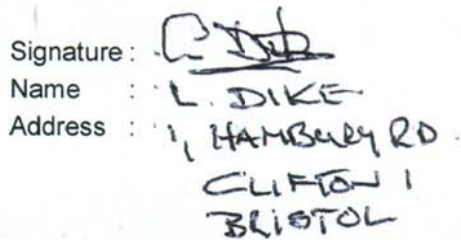 Signature :
Name : L. DIKE
Address : 1, HAMBURY RD
CLIFTON 1
BRISTOL